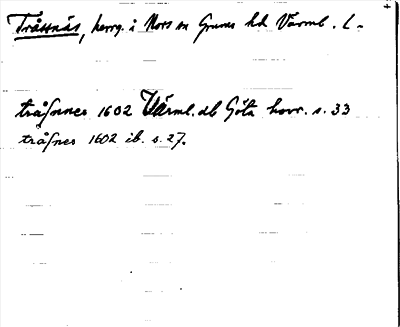 Tråssnäs, herrg. i Nors sn Grums hd Värml. L.
tråsnnes 1602 Värml. db Göta hovr. s. 33
tråsnes 1602 ib. s. 27.